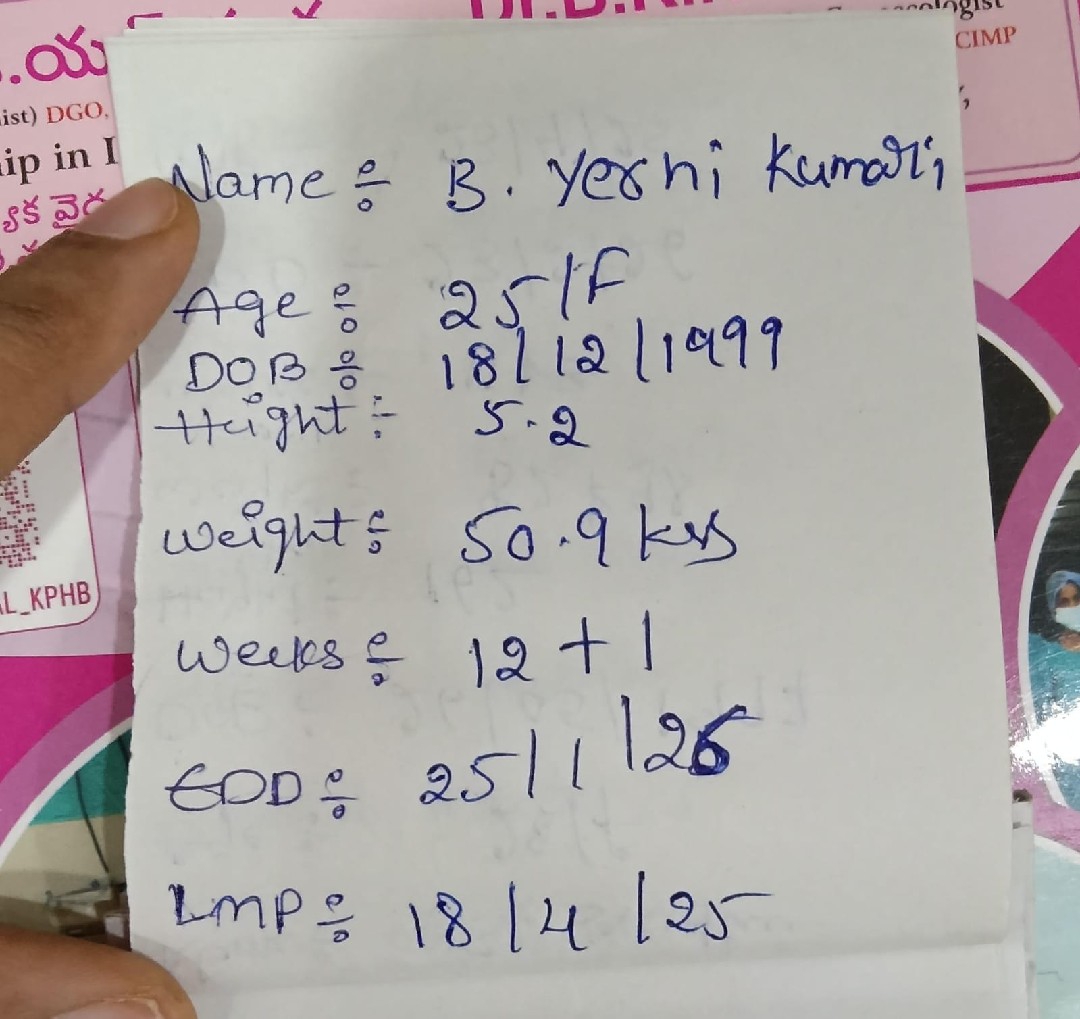 .య
ist) DGO,
ip in I
CIMP
L_KPHB
Name ÷ B. Yerni Kumari,
Age ÷ 25/F
DOB ÷ 18/12/1999
Height ÷ 5.2
Weight ÷ 50.9 kgs
Weeks ÷ 12 + 1
EDD ÷ 25/1/26
LMP ÷ 18/4/25